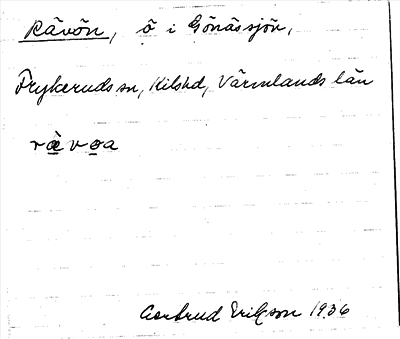 Rävön, ö i Gönässjön,
Frykeruds sn, Kils hd, Värmlands län
rævoa
Gertrud Ericson 1936